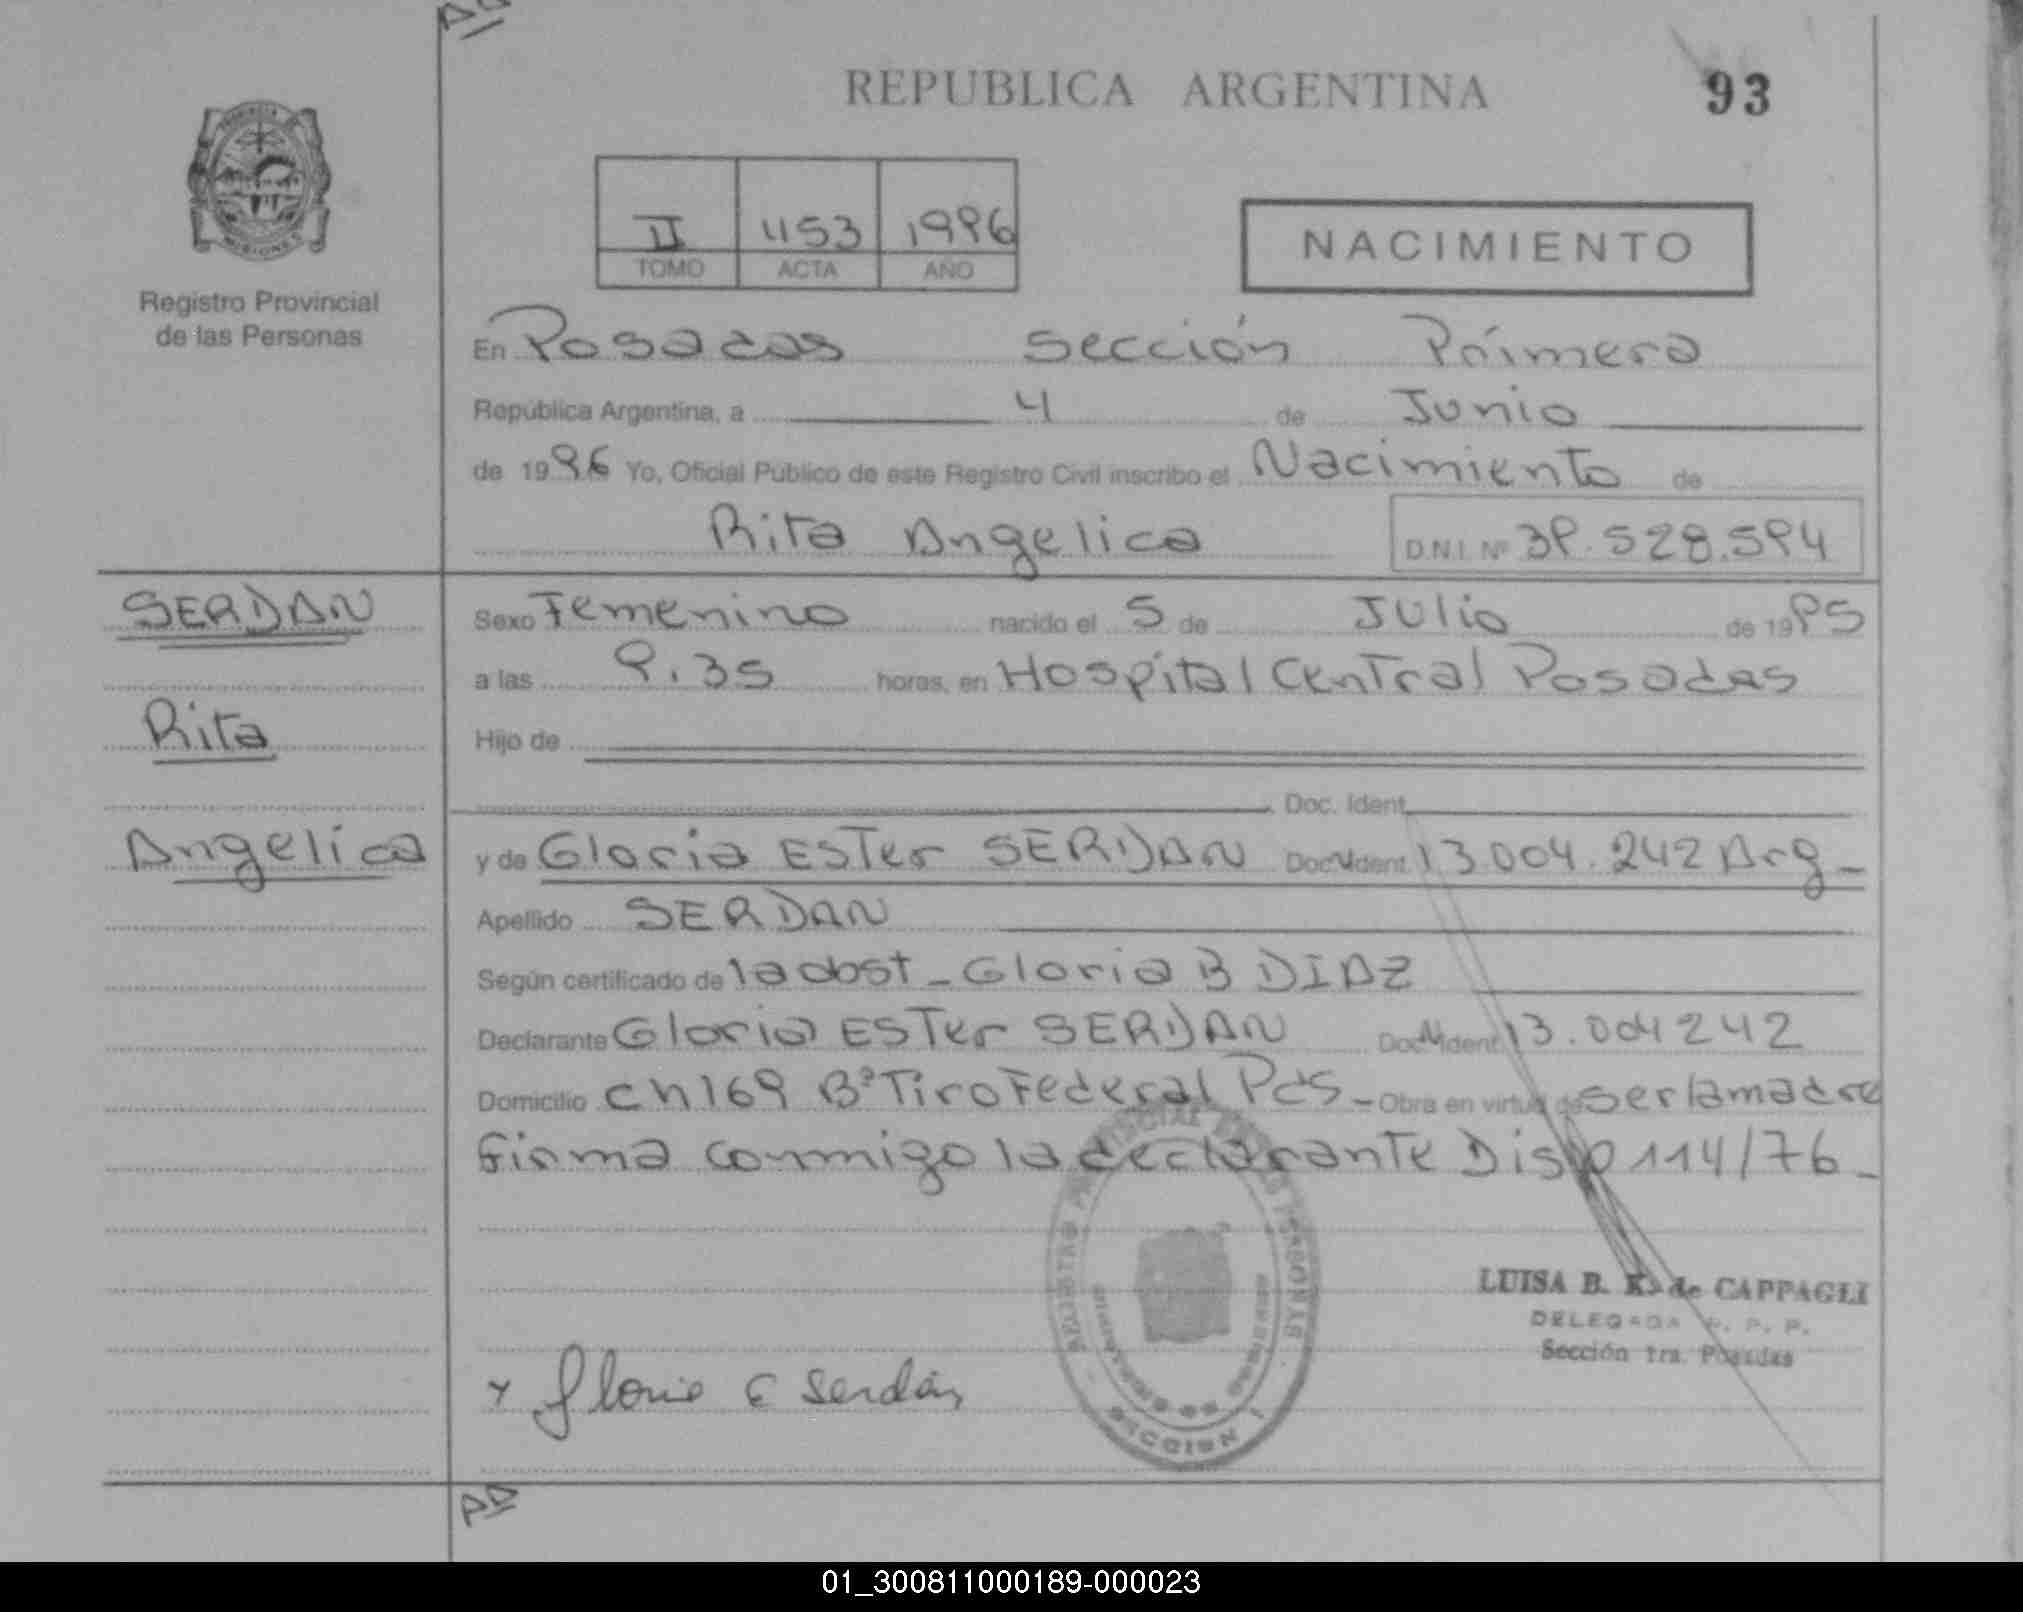 REPUBLICA ARGENTINA
93
II 1153 1996
TOMO ACTA AÑO
NACIMIENTO
Registro Provincial
de las Personas
En Posadas Sección Primera
República Argentina, a 4 de Junio
de 1996 Yo, Oficial Público de este Registro Civil inscribo el Nacimiento de
Rita Angelica D.N.I. Nº 39.528.594
SERDAN
Rita
Angelica
Sexo Femenino nacido el 5 de Julio de 1995
a las 9.35 horas, en Hospital Central Posadas
Hijo de
Doc. Ident.
y de Gloria Ester SERDAN Doc. Ident. 13.004.242 Arg_
Apellido SERDAN
Según certificado de la obst_ Gloria B DIAZ
Declarante Gloria Ester SERDAN Doc. Ident. 13.004242
Domicilio ch 169 Bº Tiro Federal Pds_ Obra en virtud de ser la madre
firma conmigo la declarante Disp 114/76_
LUISA B. K. de CAPPAGLI
DELEGADA R. P. P.
Sección 1ra. Posadas
x Gloria E Serdán
SECCION 1
01_300811000189-000023